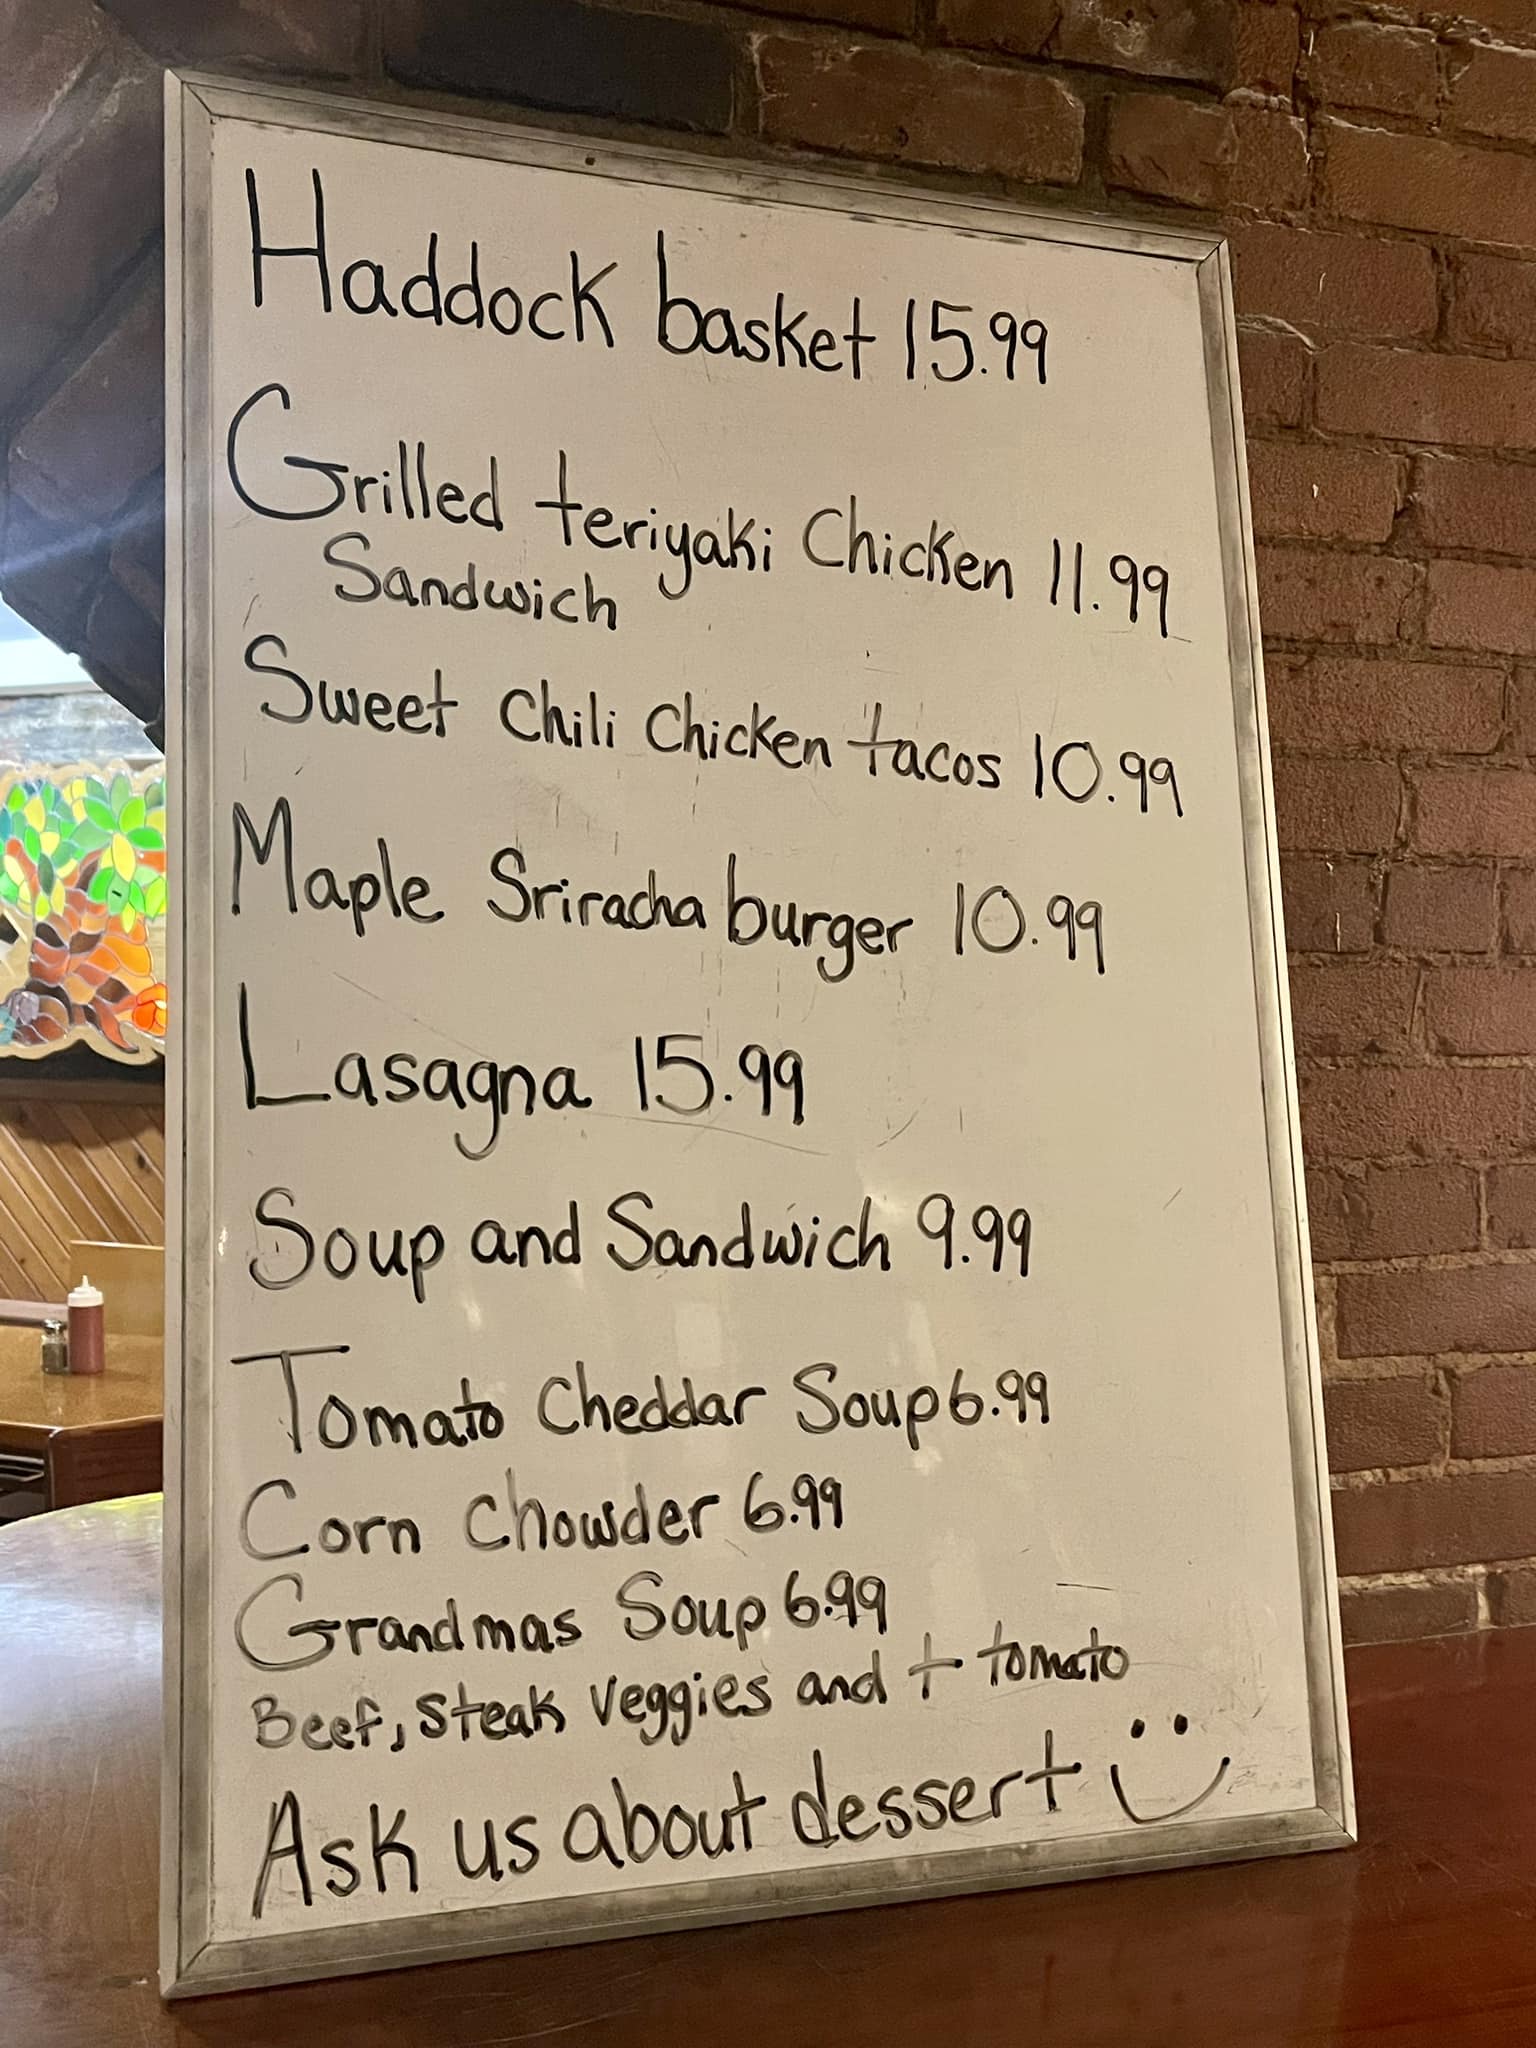 Haddock basket 15.99
Grilled teriyaki Chicken 11.99
Sandwich
Sweet Chili Chicken tacos 10.99
Maple Sriracha burger 10.99
Lasagna 15.99
Soup and Sandwich 9.99
Tomato Cheddar Soup 6.99
Corn Chowder 6.99
Grandmas Soup 6.99
Beef, Steak veggies and t tomato
Ask us about dessert